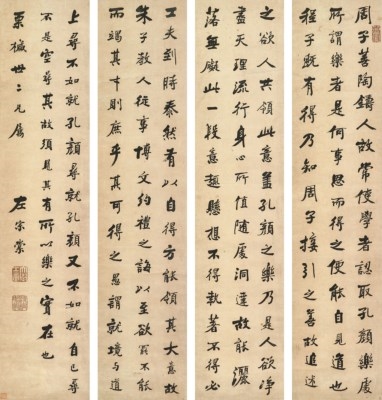 周子善陶鑄人故常使尋孔顏樂處
所謂樂者是何事思而得之便能自見道也
程子既有得乃知周子接引之善故追述
之欲人共領此意蓋孔顏之樂乃是人欲淨
盡天理流行身心所值隨處洞達故能灑
落無礙此一段意趣懸想不得執著不得必
工夫到時泰然有以自得方能領其大意故
朱子教人從事博文約禮之誨以至欲罷不能
而竭其才則庶乎其可得之思謂就境與道
上尋不如就孔顏尋就孔顏又不如就自己尋
不是空尋其故須見其有所以樂之實在也
世二兄屬
左宗棠